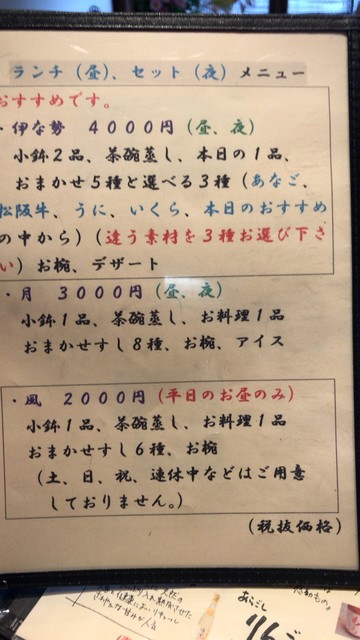 ランチ（昼）、セット（夜）メニュー
おすすめです。
・伊な勢　４０００円（昼、夜）
小鉢２品、茶碗蒸し、本日の１品、
おまかせ５種と選べる３種（あなご、
松阪牛、うに、いくら、本日のおすすめ
の中から）（違う素材を３種お選び下さ
い）お椀、デザート
・月　３０００円（昼、夜）
小鉢１品、茶碗蒸し、お料理１品
おまかせすし８種、お椀、アイス
・風　２０００円（平日のお昼のみ）
小鉢１品、茶碗蒸し、お料理１品
おまかせすし６種、お椀
（土、日、祝、連休中などはご用意
しておりません。）
（税抜価格）
あらごし